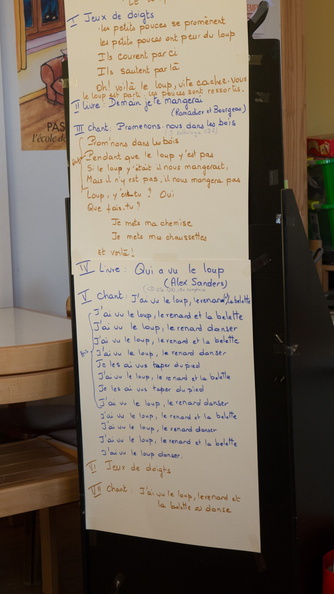 I Jeux de doigts
Les petits pouces se promènent
les petits pouces ont peur du loup
Ils courent par ci
Ils sautent par là
Oh! voilà le loup, vite cachez-vous
le loup est parti, les pouces sont ressortis.
II Livre: Demain je te mangerai
(Ramadier et Bourgeau)
III Chant: Promenons-nous dans les bois
Prom'nons dans les bois
Pendant que le loup y'est pas
Si le loup y'était il nous mangerait,
Mais il n'y est pas, il nous mangera pas
Loup, y'es tu? Oui
Que fais-tu?
Je mets ma chemise
Je mets mes chaussettes
et voilà!
IV Livre: Qui a vu le loup
(Alex Sanders)
V Chant: J'ai vu le loup, le renard, la belette
J'ai vu le loup, le renard et la belette
J'ai vu le loup, le renard danser
J'ai vu le loup, le renard et la belette
J'ai vu le loup, le renard danser
Je les ai vus taper du pied
J'ai vu le loup, le renard et la belette
Je les ai vus taper du pied
J'ai vu le loup, le renard danser
J'ai vu le loup, le renard et la belette
J'ai vu le loup, le renard danser
J'ai vu le loup, le renard et la belette
J'ai vu le loup danser.
VI Jeux de doigts
VII Chant: J'ai vu le loup, le renard et
la belette danse
PAS
l'école de